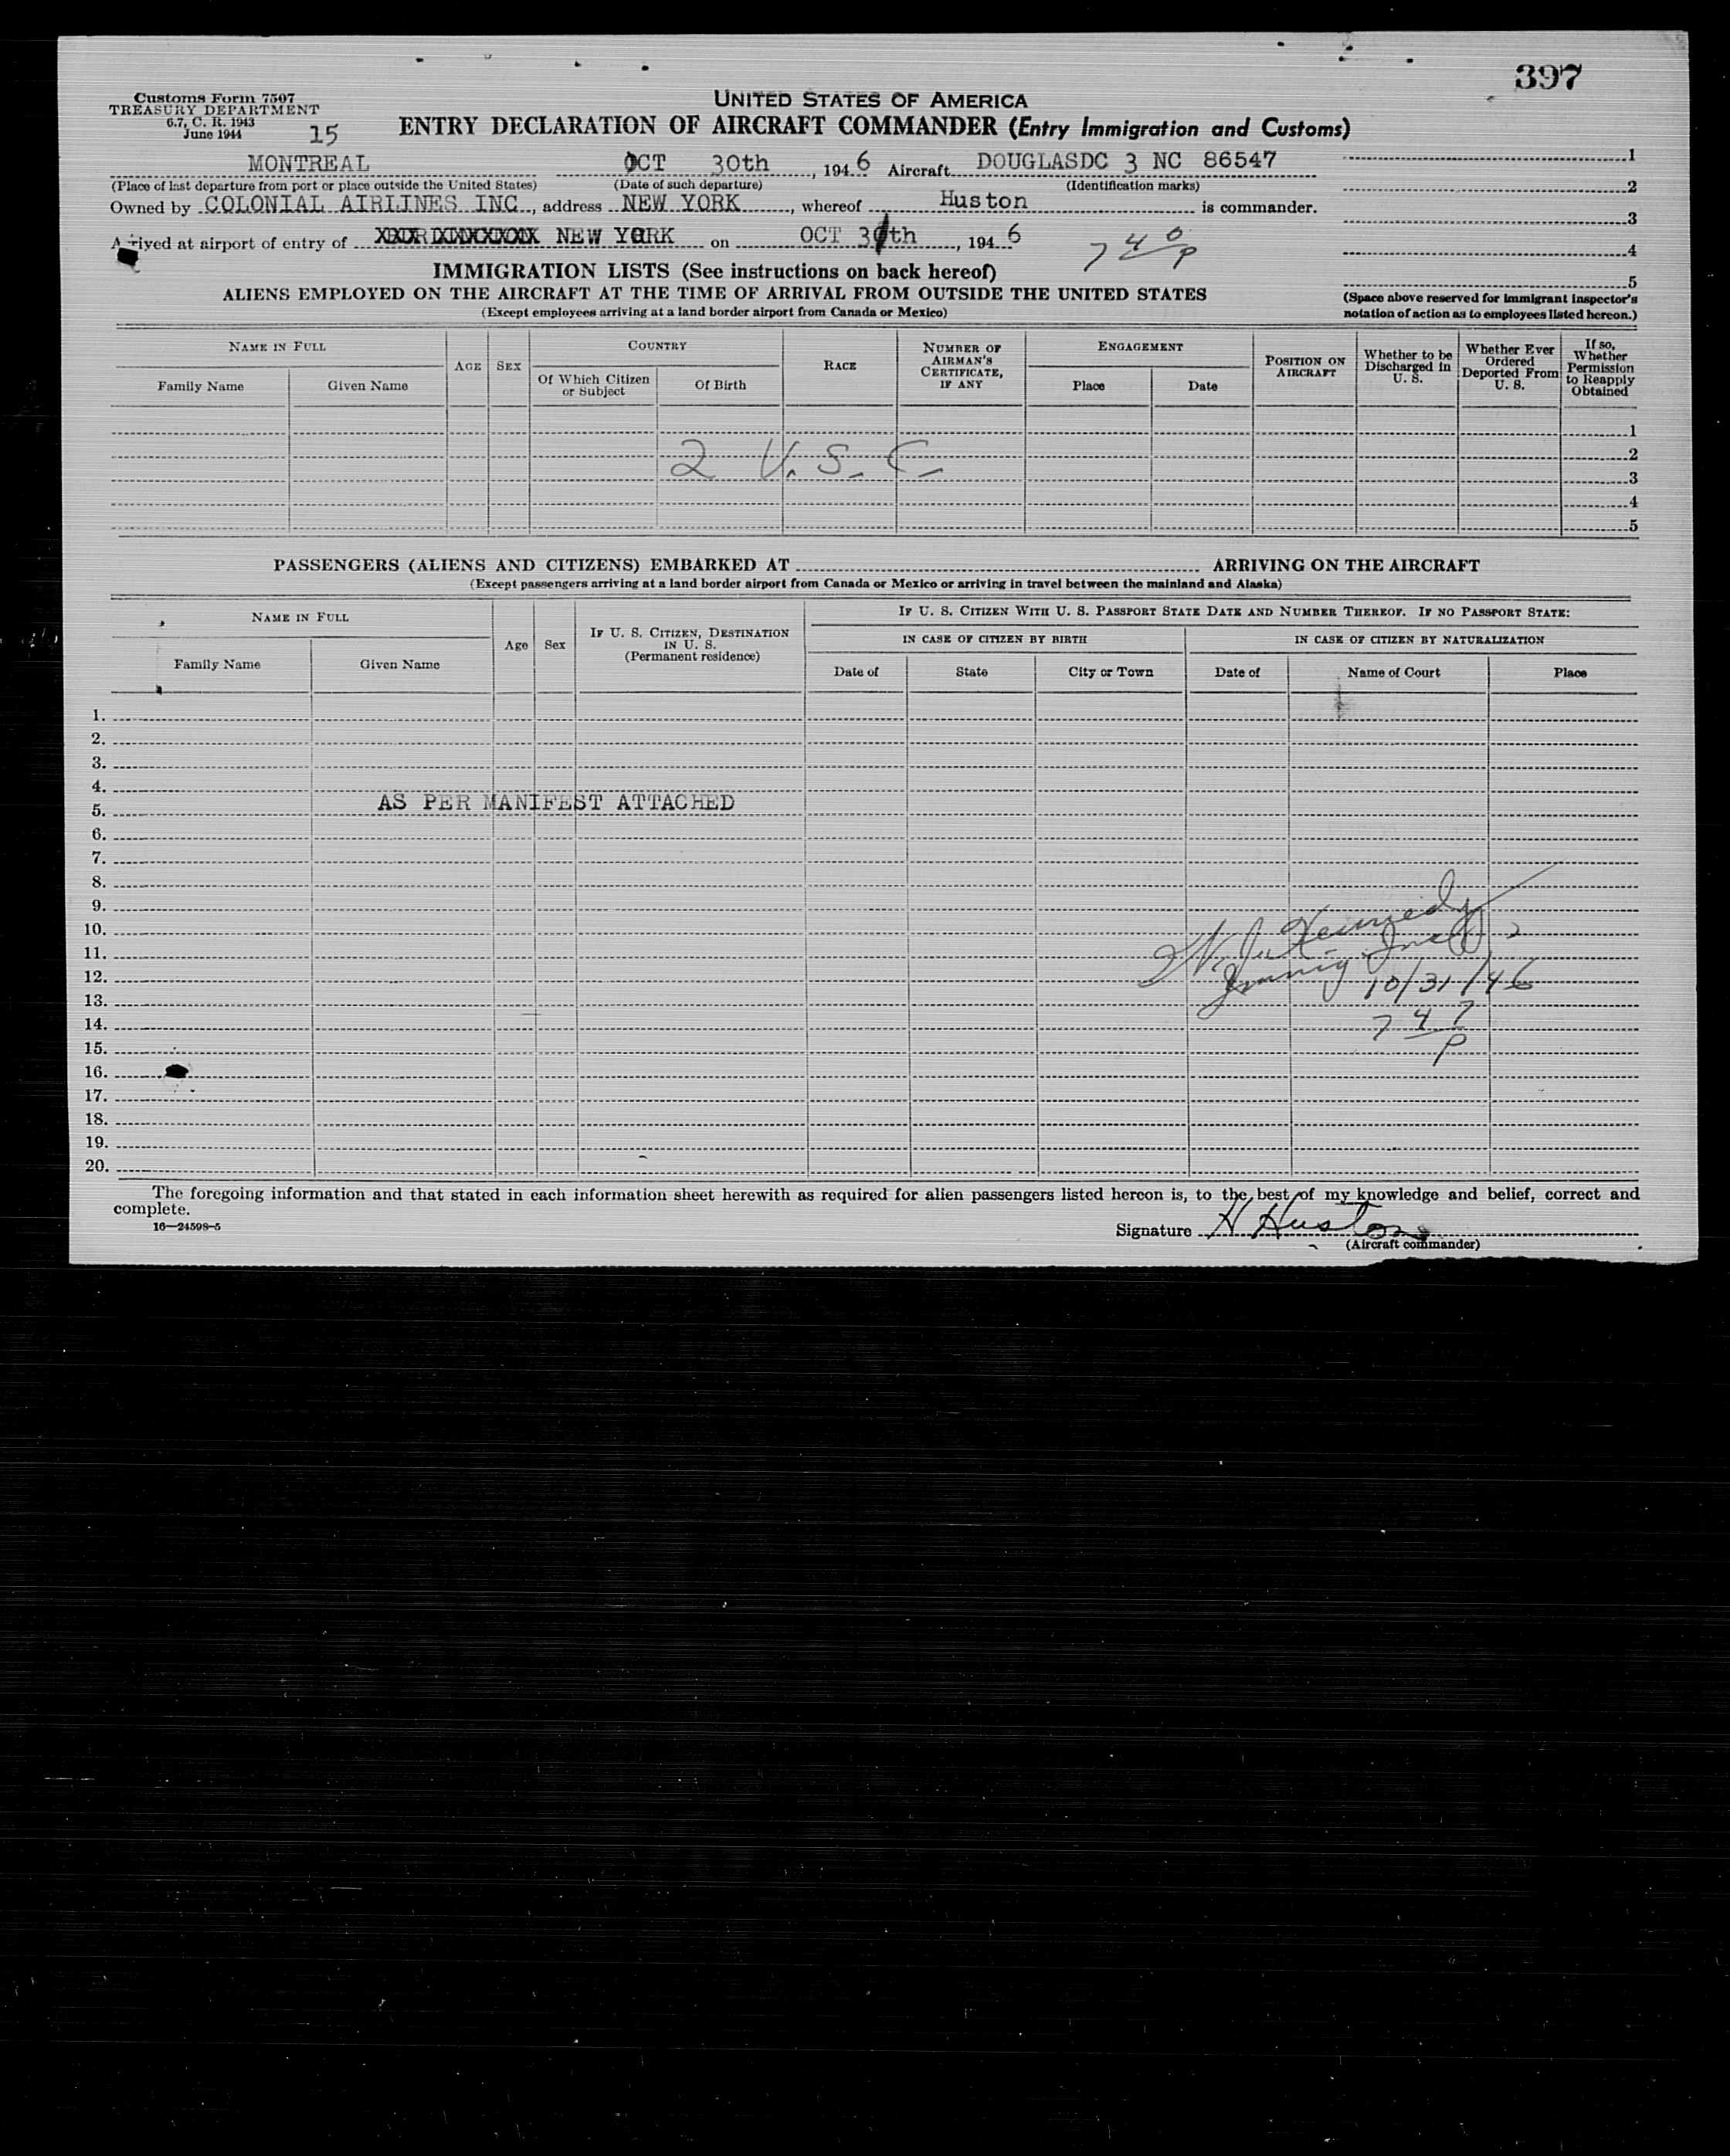 397
Customs Form 7507
TREASURY DEPARTMENT
6.7, C. R. 1943
June 1944
15
UNITED STATES OF AMERICA
ENTRY DECLARATION OF AIRCRAFT COMMANDER (Entry Immigration and Customs)
MONTREAL OCT 30th, 1946 Aircraft DOUGLASDC 3 NC 86547
(Place of last departure from port or place outside the United States) (Date of such departure) (Identification marks)
Owned by COLONIAL AIRLINES INC, address NEW YORK, whereof Huston is commander.
Arrived at airport of entry of NEW YORK on OCT 31th, 1946
7 40 P
1
2
3
4
5
(Space above reserved for immigrant inspector's
notation of action as to employees listed hereon.)
IMMIGRATION LISTS (See instructions on back hereof)
ALIENS EMPLOYED ON THE AIRCRAFT AT THE TIME OF ARRIVAL FROM OUTSIDE THE UNITED STATES
(Except employees arriving at a land border airport from Canada or Mexico)
NAME IN FULL
Family Name
Given Name
AGE
SEX
COUNTRY
Of Which Citizen or Subject
Of Birth
RACE
NUMBER OF AIRMAN'S CERTIFICATE, IF ANY
ENGAGEMENT
Place
Date
POSITION ON AIRCRAFT
Whether to be Discharged in U. S.
Whether Ever Ordered Deported From U. S.
If so, Whether Permission to Reapply Obtained
1
2
2 U. S. C.
3
4
5
PASSENGERS (ALIENS AND CITIZENS) EMBARKED AT ARRIVING ON THE AIRCRAFT
(Except passengers arriving at a land border airport from Canada or Mexico or arriving in travel between the mainland and Alaska)
NAME IN FULL
Family Name
Given Name
Age
Sex
IF U. S. CITIZEN, DESTINATION IN U. S.
(Permanent residence)
IF U. S. CITIZEN WITH U. S. PASSPORT STATE DATE AND NUMBER THEREOF. IF NO PASSPORT STATE:
IN CASE OF CITIZEN BY BIRTH
Date of
State
City or Town
IN CASE OF CITIZEN BY NATURALIZATION
Date of
Name of Court
Place
1.
2.
3.
4.
5. AS PER MANIFEST ATTACHED
6.
7.
8.
9.
10.
11.
12.
13.
14.
15.
16.
17.
18.
19.
20.
W. J. Kennedy
Immig
10/31/46
7 47
P
The foregoing information and that stated in each information sheet herewith as required for alien passengers listed hereon is, to the best of my knowledge and belief, correct and
complete.
16—24598-5
Signature H Huston
(Aircraft commander)